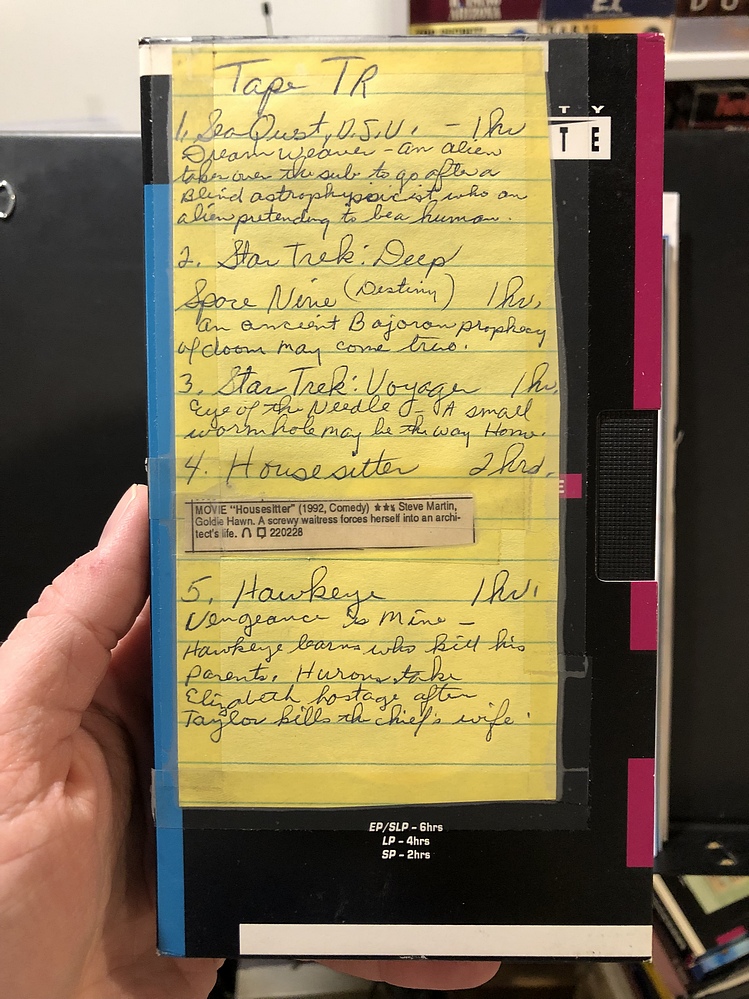 Tape TR
T Y
T E
1. SeaQuest, D.S.V. - 1 hr
Dreamweaver - an alien
takes over the sub to go after a
Blind astrophysicist who an
alien pretending to be a human.
2. Star Trek: Deep
Space Nine (Destiny) 1 hr.
an ancient Bajoran prophecy
of doom may come true.
3. Star Trek: Voyager 1 hr.
Eye of the Needle - A small
wormhole may be the way Home.
4. Housesitter 2 hrs.
E
MOVIE "Housesitter" (1992, Comedy) ★★½ Steve Martin,
Goldie Hawn. A screwy waitress forces herself into an archi-
tect's life. 220228
5. Hawkeye 1 hr.
Vengeance Is Mine -
Hawkeye learns who kill his
parents. Hurons take
Elizabeth hostage after
Taylor kills the chief's wife.
EP/SLP - 6hrs
LP - 4hrs
SP - 2hrs